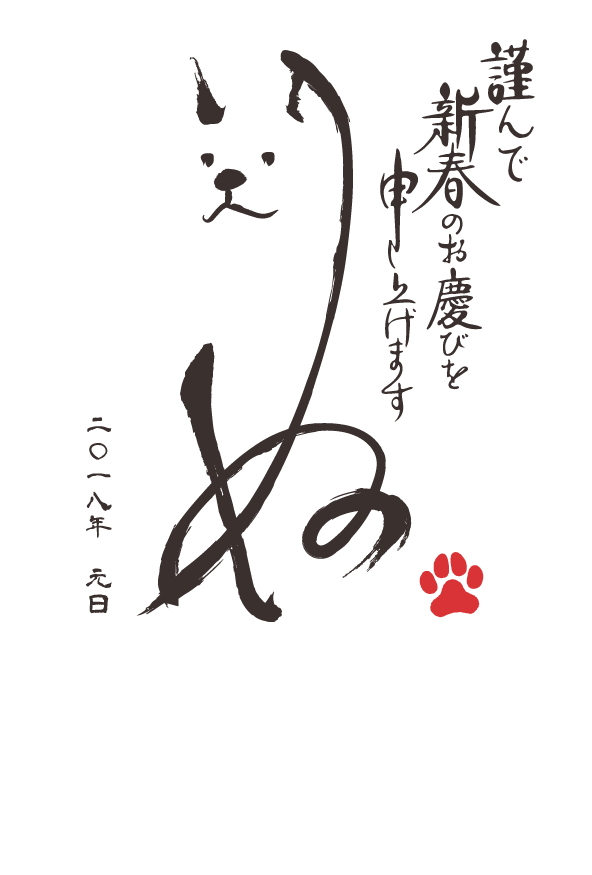 謹んで
新春のお慶びを
申し上げます
いぬ
二〇一八年 元日